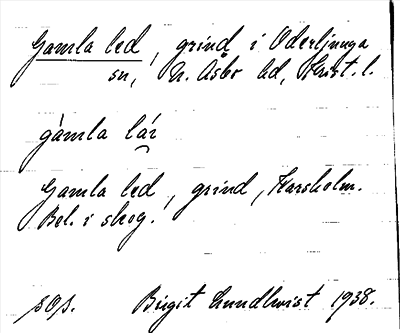 Gamla led, grind i Oderljunga
sn, N. Åsbo hd, Krist. l.
gàmla lár
Gamla led, grind, Karsholm.
Bel. i skog.
sOs. Birgit Lundkvist 1938.